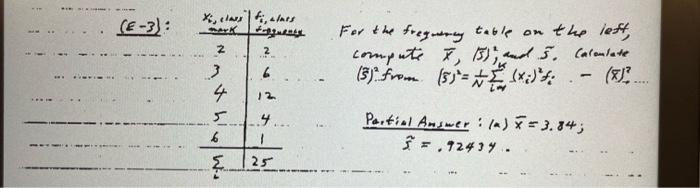 (E-3):
xᵢ, class mark | fᵢ, class frequency
2 | 2
3 | 6
4 | 12
5 | 4
6 | 1
Σ | 25
For the frequency table on the left,
compute x̄, (s̃)², and s̃. Calculate
(s̃)² from (s̃)² = 1/N Σ (xᵢ)² fᵢ - (x̄)².
Partial Answer: (a) x̄ = 3.84;
s̃ = .92434.